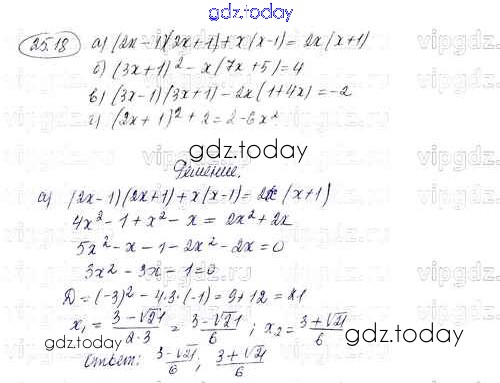 gdz.today
25.18
а) (2x-1)(2x+1)+x(x-1)=2x(x+1)
б) (3x+1)²-x(7x+5)=4
в) (3x-1)(3x+1)-2x(1+4x)=-2
г) (2x+1)²+2=2-6x²
gdz.today
Решение.
а) (2x-1)(2x+1)+x(x-1)=2x(x+1)
4x²-1+x²-x=2x²+2x
5x²-x-1-2x²-2x=0
3x²-3x-1=0
gdz.today
D=(-3)²-4·3·(-1)=9+12=21
x₁=(3-√21)/(2·3)=(3-√21)/6; x₂=(3+√21)/6
gdz.today
Ответ: (3-√21)/6; (3+√21)/6
gdz.today